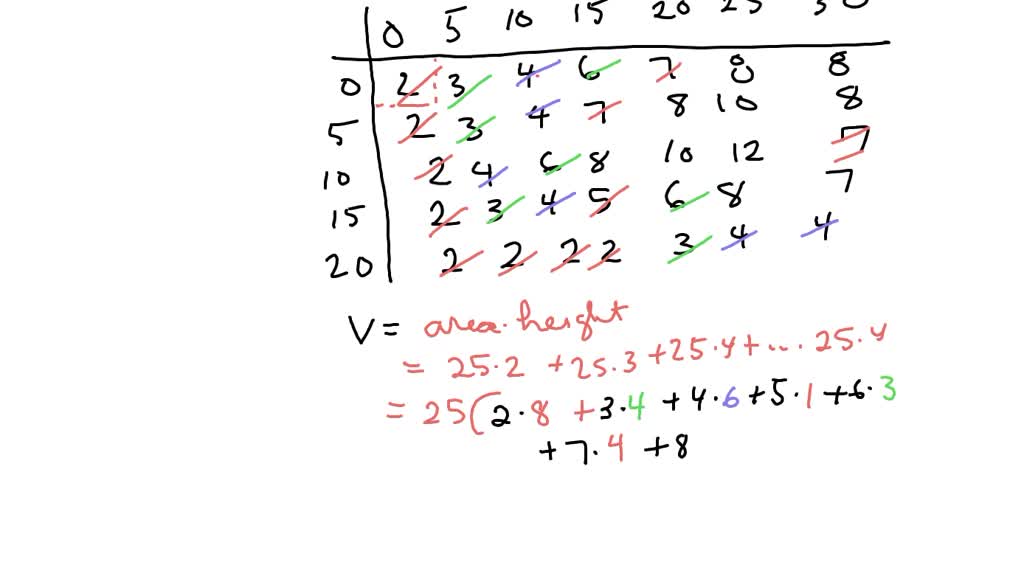 0 5 10 15 20 25 30
0 2 3 4 6 7 8 8
5 2 3 4 7 8 10 8
10 2 4 6 8 10 12 7
15 2 3 4 5 6 8 7
20 2 2 2 2 3 4 4
V = area · height
= 25·2 + 25·3 + 25·4 + ... 25·4
= 25(2·8 + 3·4 + 4·6 + 5·1 + 6·3
+ 7·4 + 8